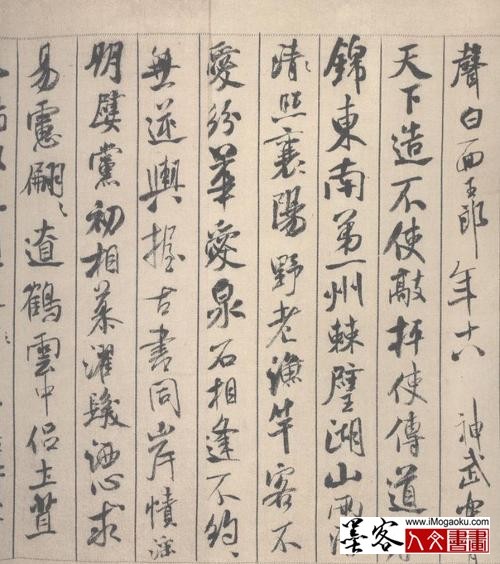 聲白面玉郎年十八 神武樂育
天下造不使敲抨使傳道衣
錦東南第一州棘璧湖山兩
清照襄陽野老漁竿客不
愛紛華愛泉石相逢不約〻
無逆輿握古書同岸幘淫
朋嬖黨初相慕濯髮洒心求
易慮翩〻遼鶴雲中侶土苴
墨客 www.iMogaoku.com
人文書畫